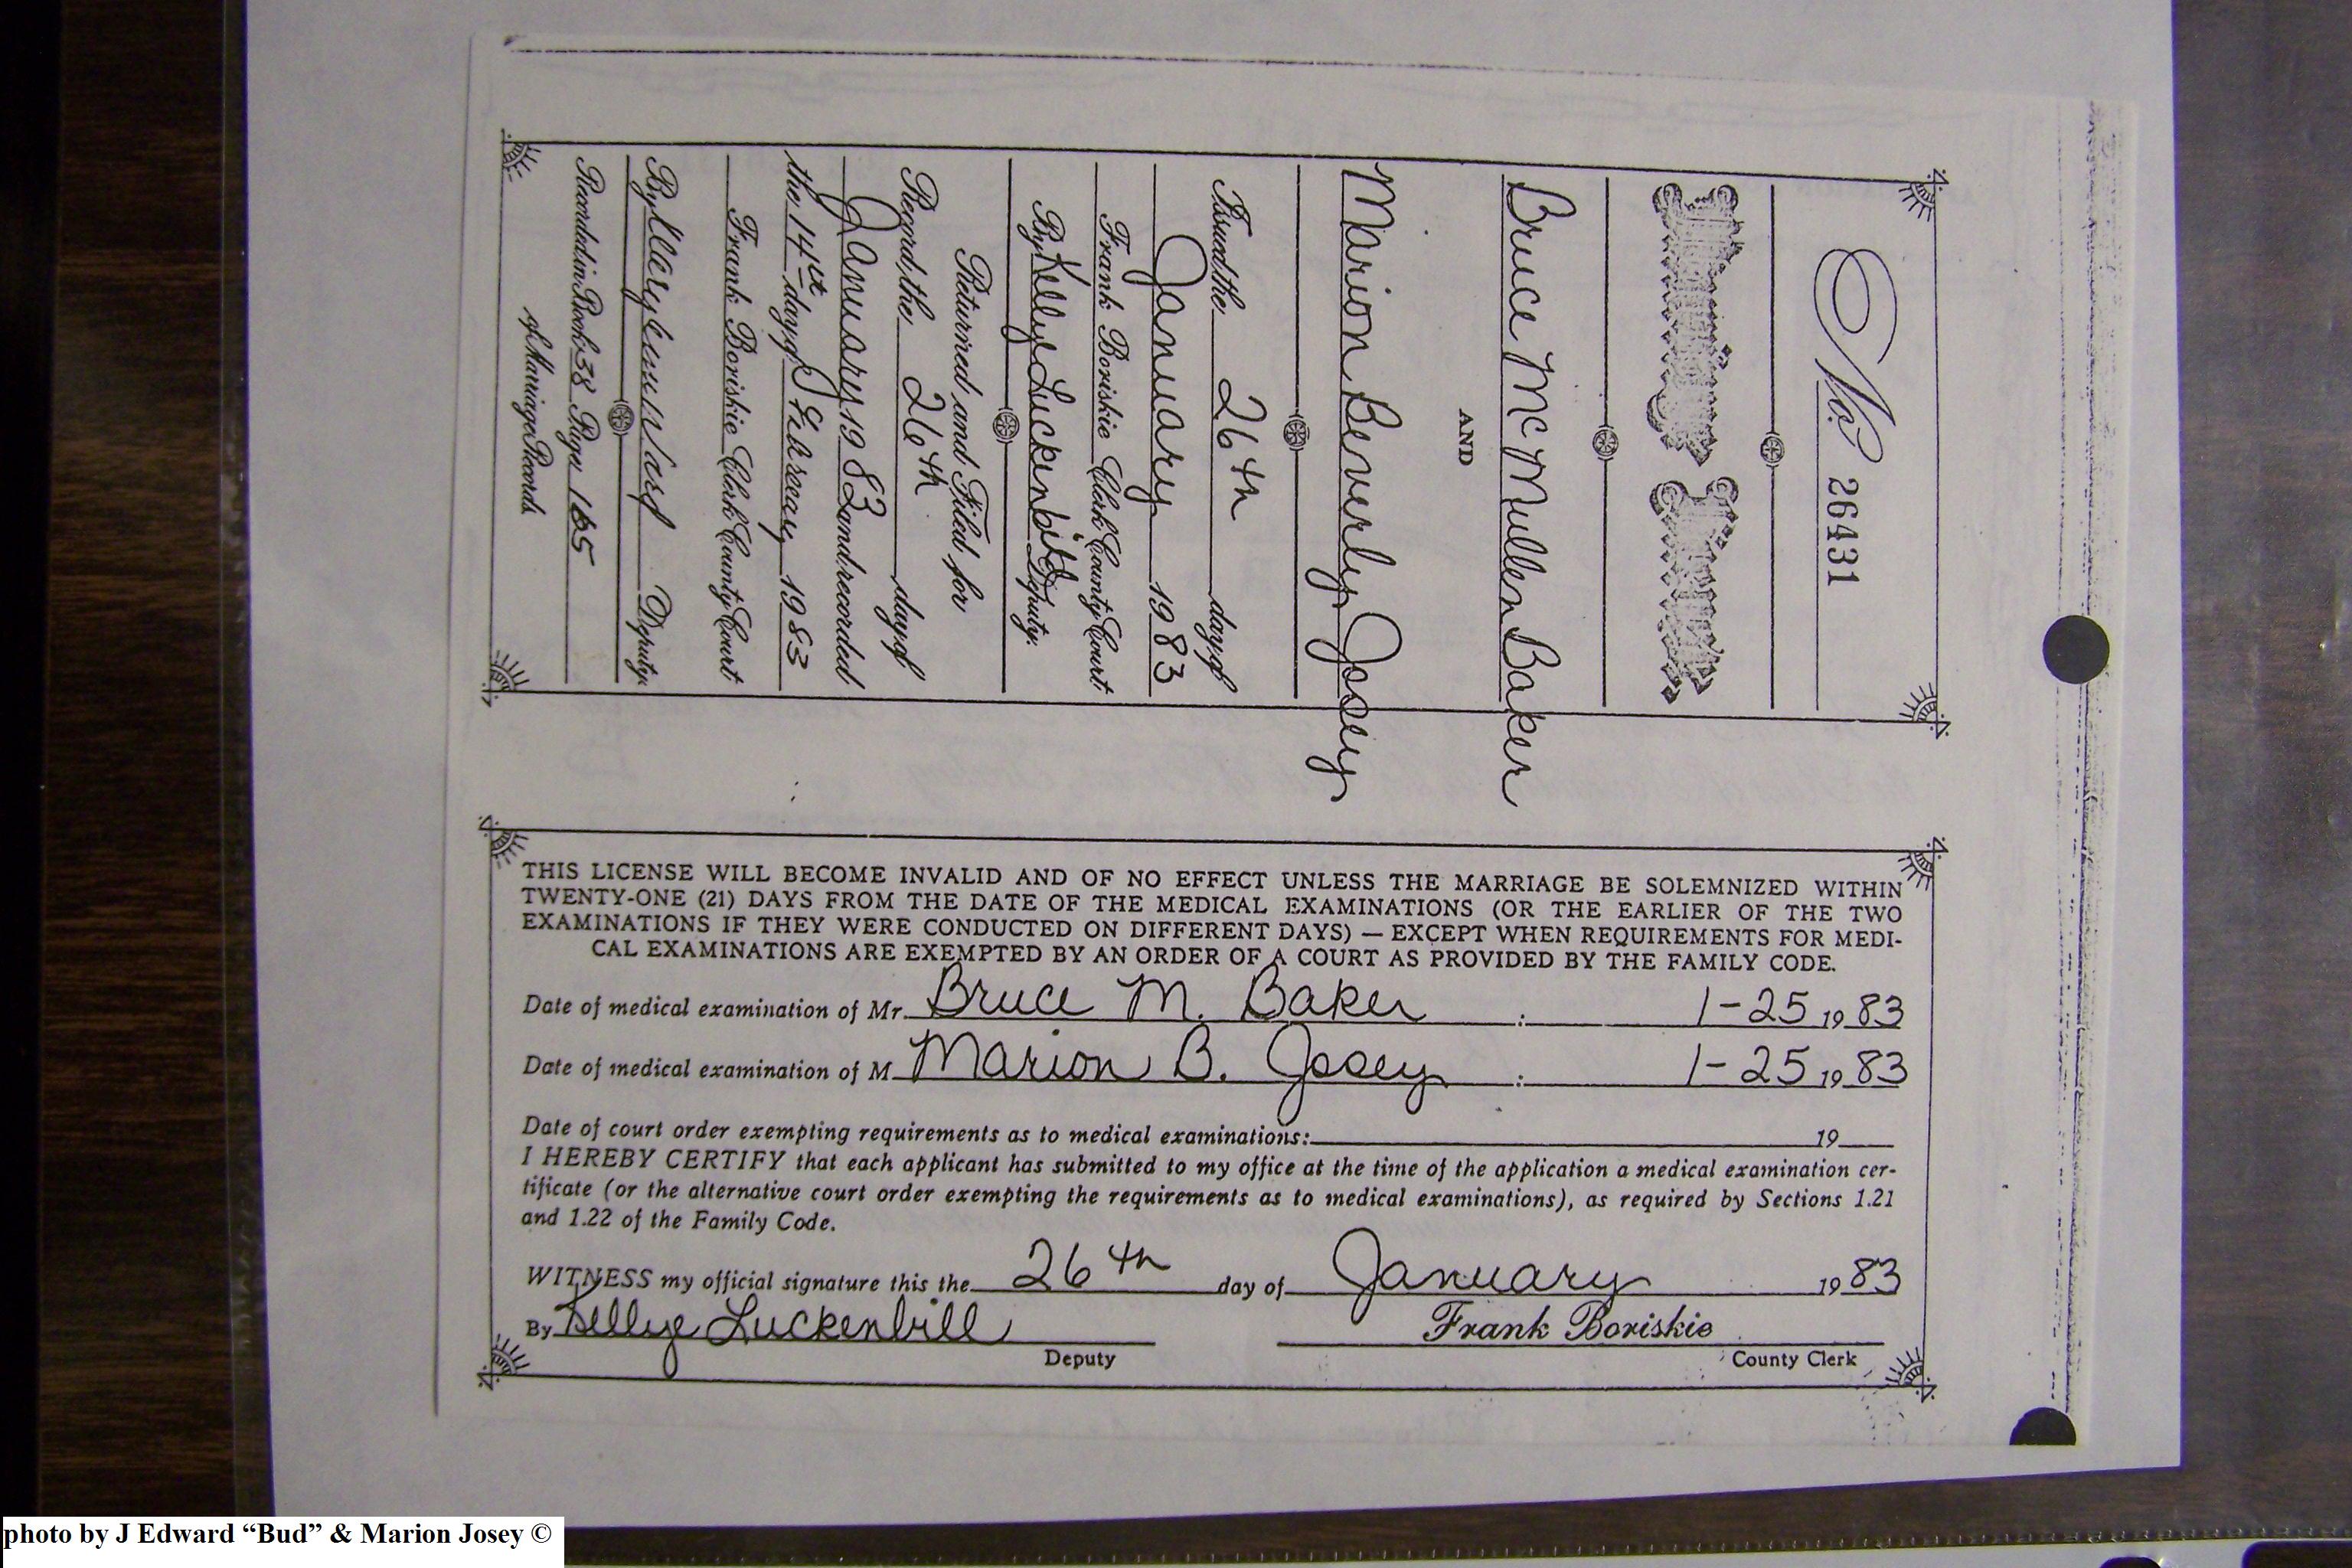 No. 26431
Marriage License
Bruce McMullen Baker
AND
Marion Beverly Josey
Issued the 26th day of
January 1983
Frank Boriskie Clerk County Court
By Kellye Luckenbill Deputy.
Returned and Filed for
Record the 26th day of
January 1983 and recorded
the 14st day of February 1983
Frank Boriskie Clerk County Court
By Deputy.
Recorded in Book 38 Page 165
of Marriage Records
THIS LICENSE WILL BECOME INVALID AND OF NO EFFECT UNLESS THE MARRIAGE BE SOLEMNIZED WITHIN
TWENTY-ONE (21) DAYS FROM THE DATE OF THE MEDICAL EXAMINATIONS (OR THE EARLIER OF THE TWO
EXAMINATIONS IF THEY WERE CONDUCTED ON DIFFERENT DAYS) — EXCEPT WHEN REQUIREMENTS FOR MEDI-
CAL EXAMINATIONS ARE EXEMPTED BY AN ORDER OF A COURT AS PROVIDED BY THE FAMILY CODE.
Date of medical examination of Mr. Bruce M. Baker : 1-25 1983
Date of medical examination of M Marion B. Josey : 1-25 1983
Date of court order exempting requirements as to medical examinations: 19
I HEREBY CERTIFY that each applicant has submitted to my office at the time of the application a medical examination cer-
tificate (or the alternative court order exempting the requirements as to medical examinations), as required by Sections 1.21
and 1.22 of the Family Code.
WITNESS my official signature this the 26th day of January 1983
By Kellye Luckenbill Frank Boriskie
Deputy County Clerk
photo by J Edward “Bud” & Marion Josey ©